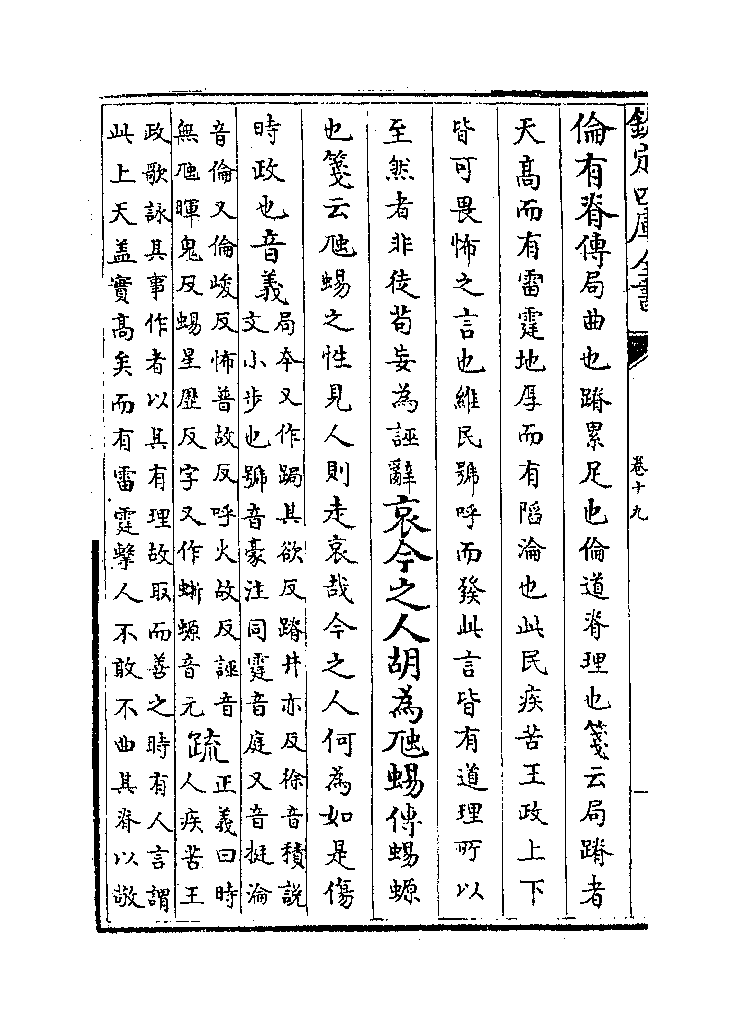 欽定四庫全書
卷十九
倫有脊傳局曲也蹐累足也倫道脊理也箋云局蹐者
天髙而有雷霆地厚而有陷淪也此民疾苦王政上下
皆可畏怖之言也維民號呼而發此言皆有道理所以
至然者非徒茍妄為誣辭哀今之人胡為虺蜴傳蜴螈
也箋云虺蜴之性見人則走哀哉今之人何為如是傷
時政也音義
局本又作跼其欲反蹐井亦反徐音積說
文小步也號音豪注同霆音庭又音挺淪
音倫又倫峻反怖普故反呼火故反誣音
無虺暉鬼反蜴星歷反字又作蜥螈音元
疏
正義曰時
人疾苦王
政歌詠其事作者以其有理故取而善之時有人言謂
此上天盖實髙矣而有雷霆擊人不敢不曲其脊以敬